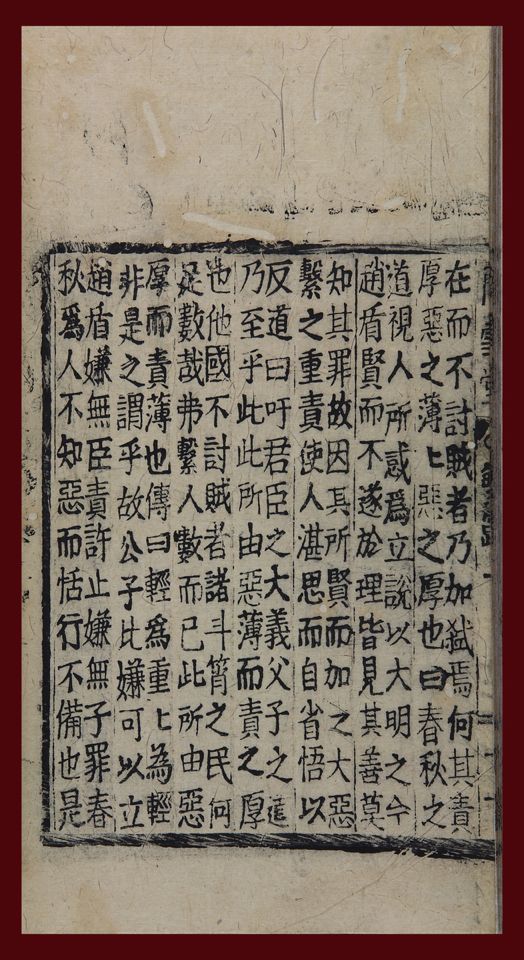 在而不討賊者乃加弑焉何其責
厚惡之薄〻惡之厚也曰春秋之
道視人所惑爲立說以大明之今
趙盾賢而不遂於理皆見其善莫
知其罪故因其所賢而加之大惡
繫之重責使人湛思而自省悟以
反道曰吁君臣之大義父子之道
乃至乎此此所由惡薄而責之厚
也他國不討賊者諸斗筲之民何
足數哉弗繫人數而已此所由惡
厚而責薄也傳曰輕爲重〻為輕
非是之謂乎故公子比嫌可以立
趙盾嫌無臣責許止嫌無子罪春
秋爲人不知惡而恬行不備也是